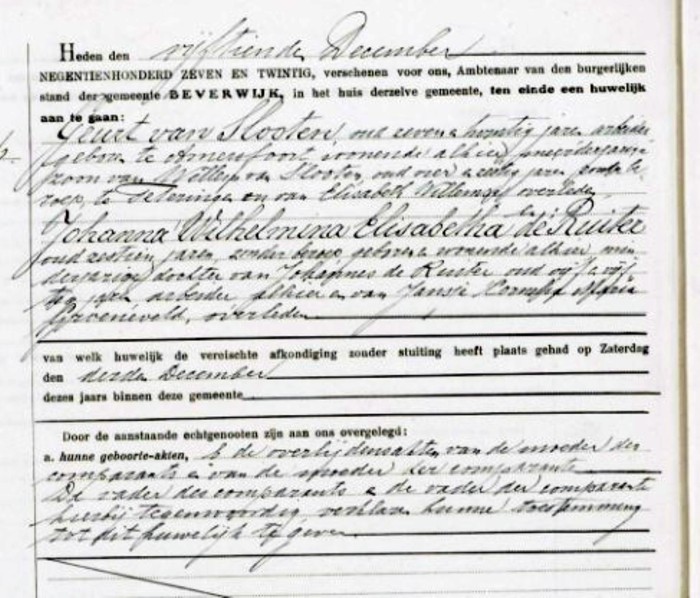 Heden den vijftienden December
NEGENTIENHONDERD ZEVEN EN TWINTIG, verschenen voor ons, Ambtenaar van den burgerlijken
stand der gemeente BEVERWIJK, in het huis derzelve gemeente, ten einde een huwelijk
aan te gaan:
Geurt van Slooten, oud zeven en twintig jaren, arbeider
geboren te Amersfoort, wonende alhier, meerderjarige
zoon van van Slooten, oud jaren, zonder be
roep, te en van Elisabeth Willemsen overleden,
en:
Johanna Wilhelmina Elisabetha de Ruiter
oud zestien jaren, zonder beroep, geboren en wonende alhier, min
derjarige dochter van Johannes de Ruiter oud vijf en vijf
tig jaren arbeider alhier en van Jansje Cornelia Maria
Groeneveld, overleden.
van welk huwelijk de vereischte afkondiging zonder stuiting heeft plaats gehad op Zaterdag
den derden December
dezes jaars binnen deze gemeente
Door de aanstaande echtgenooten zijn aan ons overgelegd:
a. hunne geboorte-akten, b de overlijdensakten van de moeder des
comparants en van de moeder der comparante
De vader des comparants en de vader der comparante
hierbij tegenwoordig verklaren hunne toestemming
tot dit huwelijk te geven.